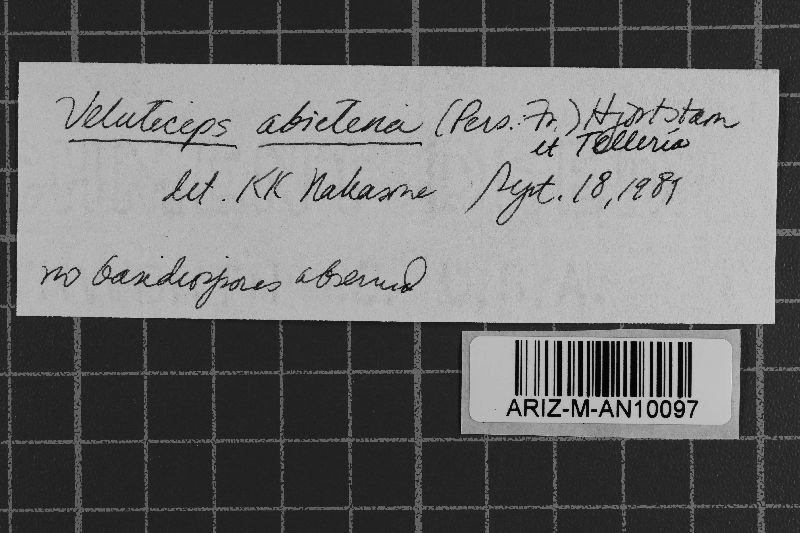 Veluticeps abietena (Pers.: Fr.) Hjortstam
et Tellería
det. KK Nakasone Sept. 18, 1989
no basidiospores observed
ARIZ-M-AN10097